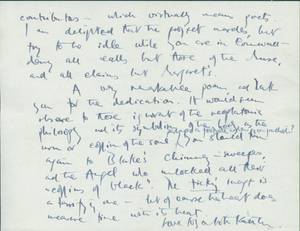 contributors – which virtually means poets.
I am delighted that the project marches, but
try to be idle while you are in Cornwall –
deny all calls but those of the Muse,
and all claims but Margaret's.
A very remarkable poem, and thank
you for the dedication. It would seem
obscure to those ignorant of the neoplatonic
philosophy and its symbolism of the body as the
urn or coffin of the soul
again to Blake's Chimney-sweeper,
and the Angel who unlocked all their
"coffins of black". The ticking
is a to me – but of course the heart does
measure time with its beat.
Love to you both Kathleen